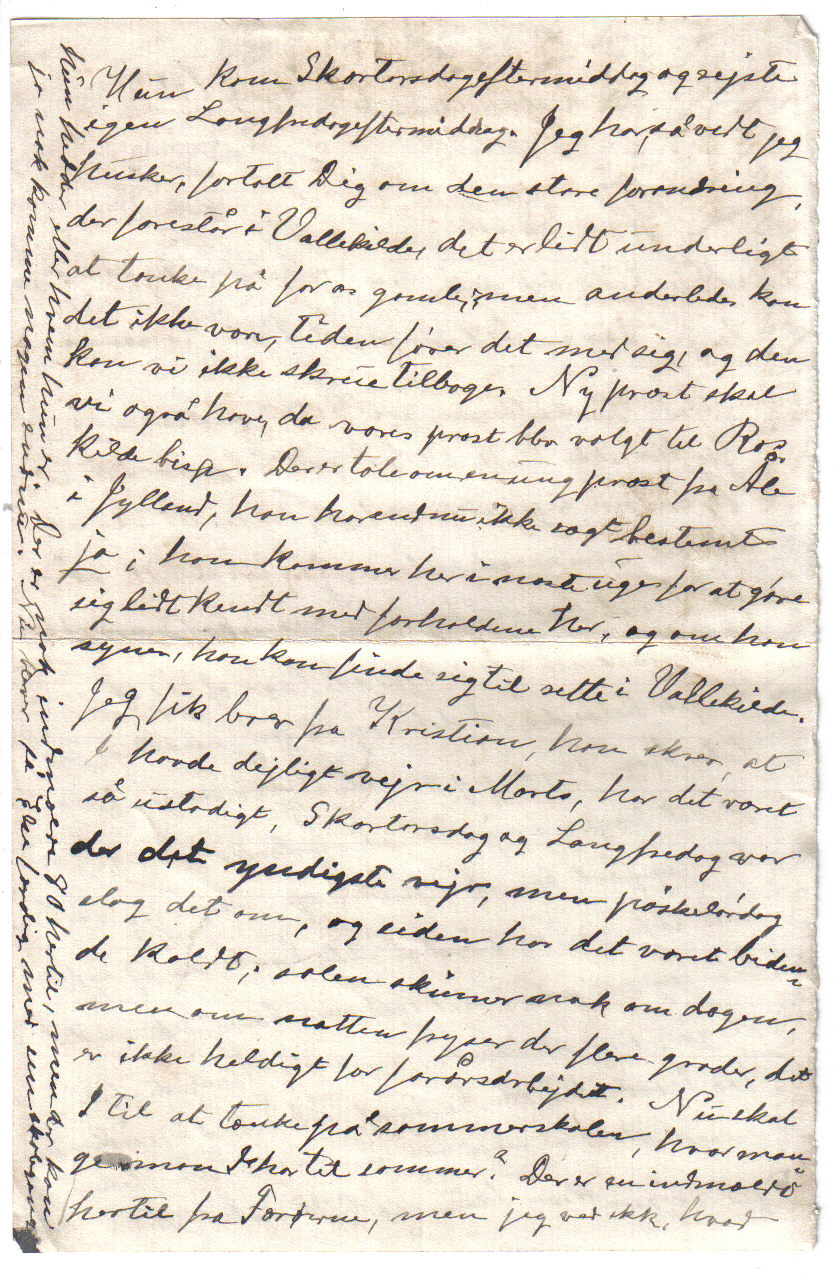 Hun kom Skærtorsdageftermiddag og rejste
igen Langfredageftermiddag. Jeg har, så vidt jeg
husker, fortalt Dig om den store forandring,
der forestår i Vallekilde, det er lidt underligt
at tænke på for os gamle; men anderledes kan
det ikke være, tiden fører det med sig, og den
kan vi ikke skrue tilbage. Ny præst skal
vi også have, da vores præst blev valgt til Ros-
kilde bisp. Der er tale om en ung præst fra Åle
i Jylland, han har endnu ikke sagt bestemt
ja; han kommer her i næste uge for at gøre
sig lidt kendt med forholdene her, og om han
synes, han kan finde sig til rette i Vallekilde.
Jeg fik brev fra Kristian, han skrev, at
I havde dejligt vejr i Marts, har det været
så ustadigt, Skærtorsdag og Langfredag var
der det yndigste vejr, men påskelørdag
slog det om, og siden har det været biden-
de koldt; solen skinner nok om dagen,
men om natten fryser der flere grader, det
er ikke heldigt for forårsarbejdet. Nu skal
I til at tænke på sommerskolen, hvor man-
ge mon I har til sommer? Der er en indmeldt
hertil fra Færøerne, men jeg ved ikk, hvad
hun hedder eller hvem hun er. Der er nok indmeldt 80 hertil, men der kan
jo nok komme nogen endnu. Nu haver så ikke færdig med